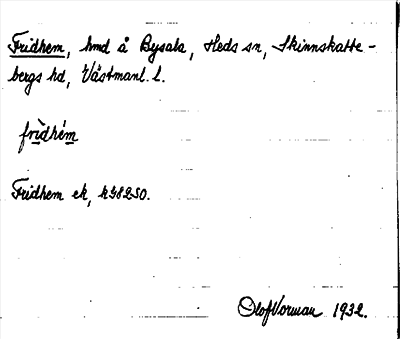 Fridhem, hmd å Bysala, Heds sn, Skinnskatte-
bergs hd, Västmanl. l.
frìdhém
Fridhem ek, k38250.
Olof Vorman 1932.